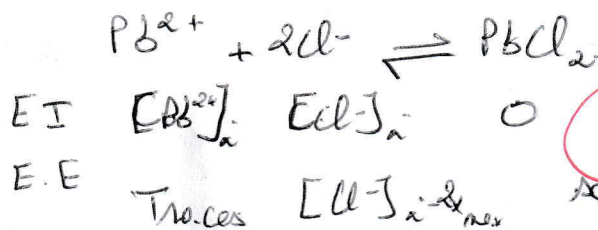 Pb²⁺ + 2Cl⁻ ⇌ PbCl₂
EI [Pb²⁺]ᵢ [Cl⁻]ᵢ 0
E.E Traces [Cl⁻]ᵢ-2xₘₐₓ